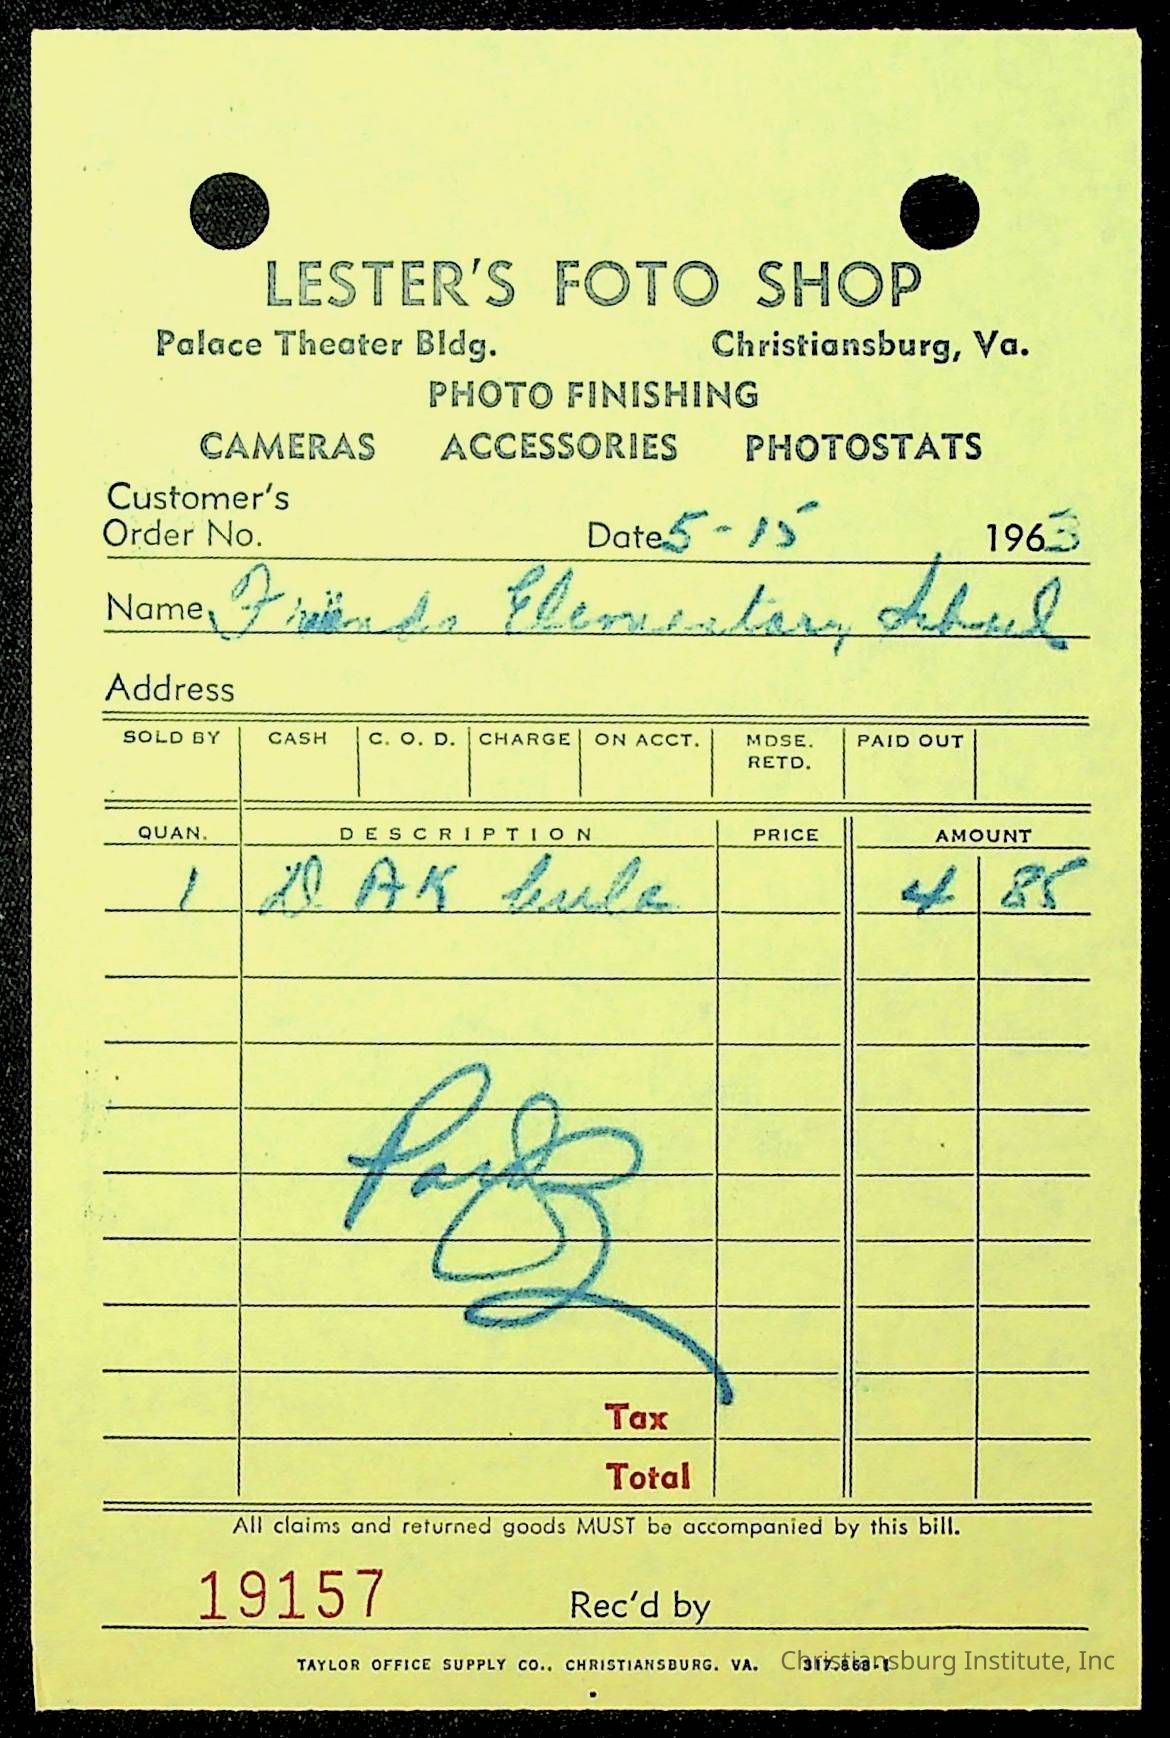 LESTER'S FOTO SHOP
Palace Theater Bldg. Christiansburg, Va.
PHOTO FINISHING
CAMERAS ACCESSORIES PHOTOSTATS
Customer's
Order No. Date 5-15 1963
Name Friends Elementary School
Address
SOLD BY CASH C. O. D. CHARGE ON ACCT. MDSE. RETD. PAID OUT
QUAN. DESCRIPTION PRICE AMOUNT
1 AK 4 85
Tax
Total
All claims and returned goods MUST be accompanied by this bill.
19157 Rec'd by
TAYLOR OFFICE SUPPLY CO., CHRISTIANSBURG, VA.
Christiansburg Institute, Inc